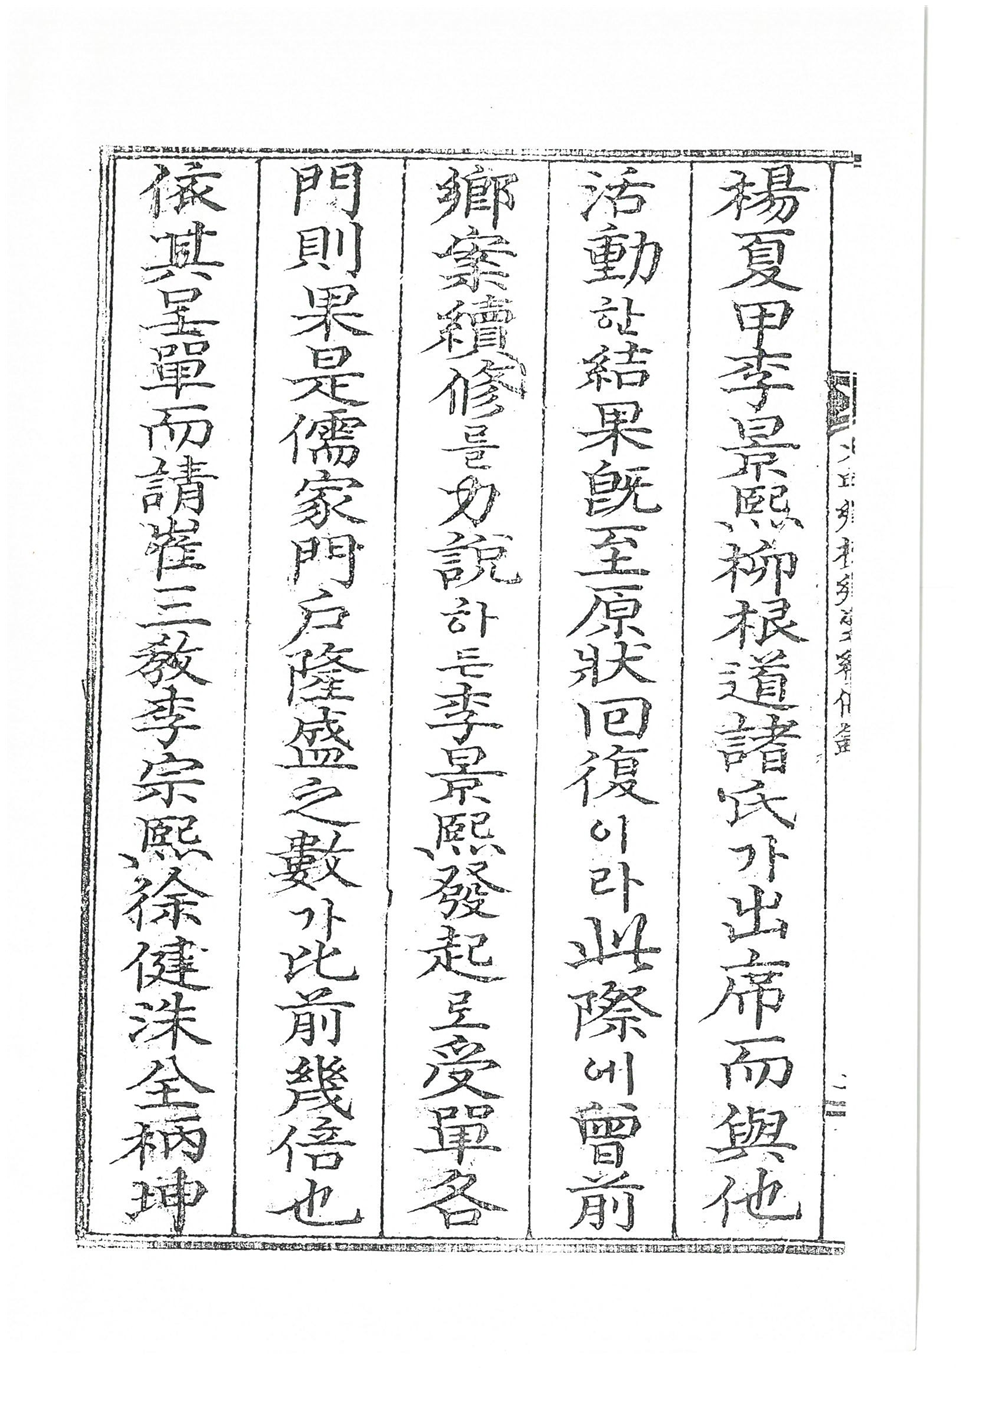 楊夏甲李景熙柳根道諸氏가出席而與他
活動한結果旣至原狀回復이라此際에曾前
鄕案續修를力說하든李景熙發起로受單各
門則果是儒家門戶隆盛之數가比前幾倍也
依其呈單而請崔三敎李宗熙徐健洙全柄坤